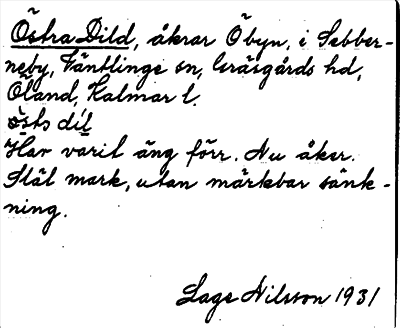 Östra Dild, åkrar Ö byn, i Sebber-
neby, Ventlinge sn, Gräsgårds hd,
Öland, Kalmar l.
östs dil
Har varit äng förr. Nu åker.
Slät mark, utan märkbar sänk-
ning.
Lage Nilsson 1931